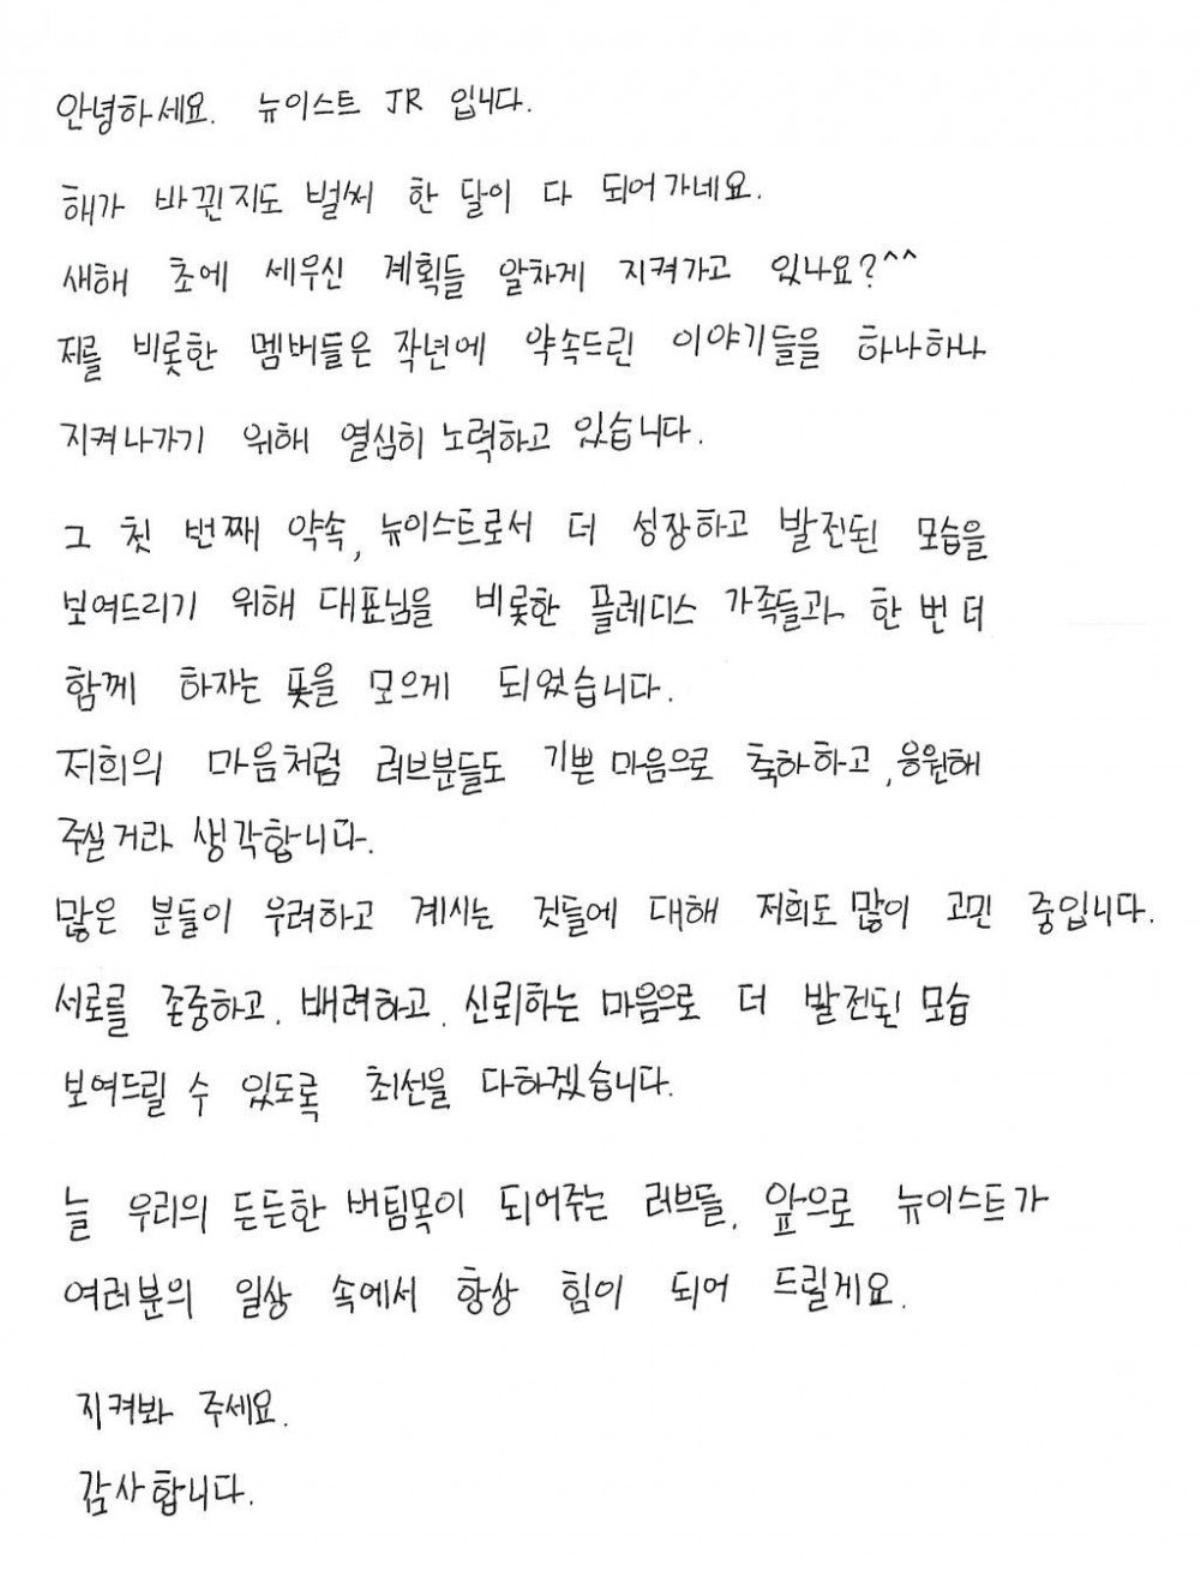 안녕하세요. 뉴이스트 JR 입니다.
해가 바뀐지도 벌써 한 달이 다 되어가네요.
새해 초에 세우신 계획들 알차게 지켜가고 있나요?^^
저를 비롯한 멤버들은 작년에 약속드린 이야기들을 하나하나
지켜나가기 위해 열심히 노력하고 있습니다.
그 첫 번째 약속, 뉴이스트로서 더 성장하고 발전된 모습을
보여드리기 위해 대표님을 비롯한 플레디스 가족들과 한 번 더
함께 하자는 뜻을 모으게 되었습니다.
저희의 마음처럼 러브분들도 기쁜 마음으로 축하하고, 응원해
주실거라 생각합니다.
많은 분들이 우려하고 계시는 것들에 대해 저희도 많이 고민 중입니다.
서로를 존중하고. 배려하고. 신뢰하는 마음으로 더 발전된 모습
보여드릴 수 있도록 최선을 다하겠습니다.
늘 우리의 든든한 버팀목이 되어주는 러브들. 앞으로 뉴이스트가
여러분의 일상 속에서 항상 힘이 되어 드릴게요.
지켜봐 주세요.
감사합니다.